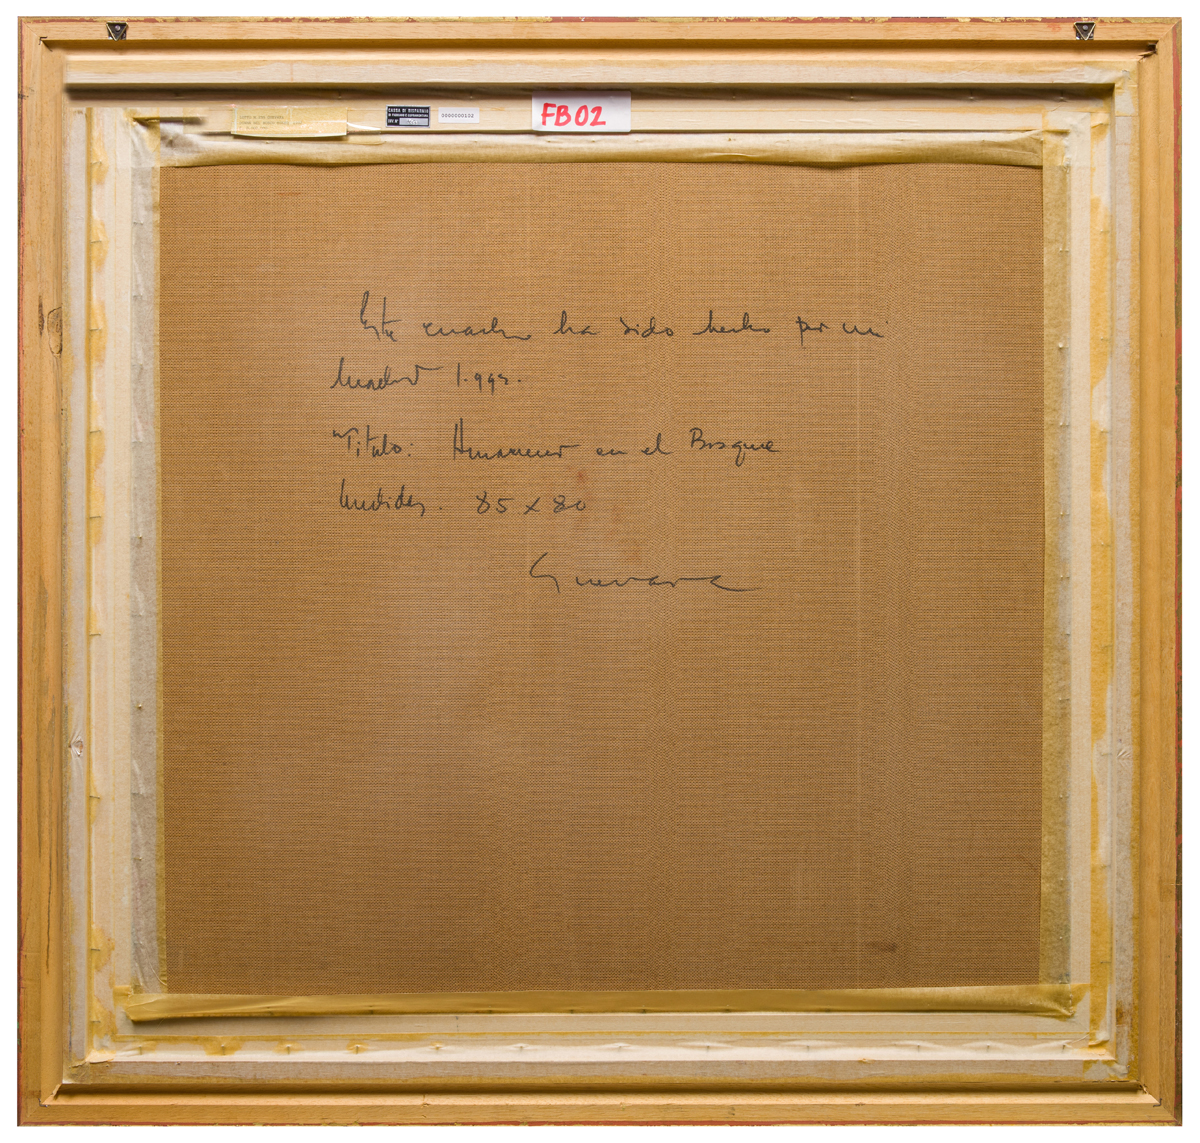 CASSA DI RISPARMIO
INV N°
0000000102
FB02
Este cuadro ha sido hecho por mi
Madrid 1.995.
"Titulo: Amanecer en el Bosque
Medidas. 85 x 80
Guevara